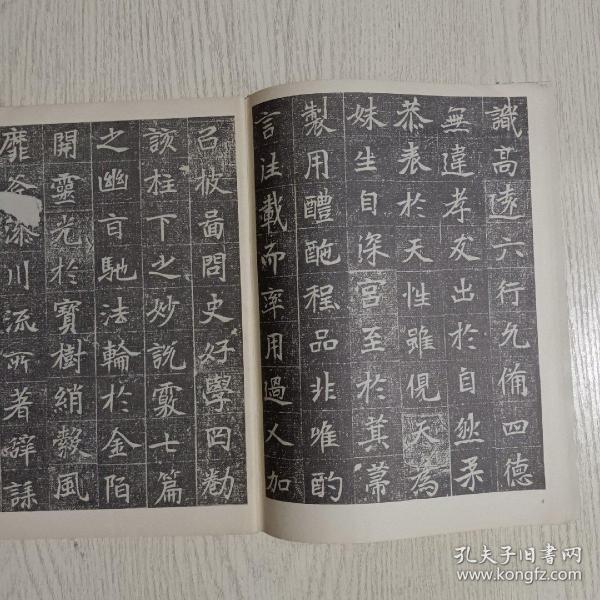 識高遠六行允備四德
無違孝友出於自然柔
恭表於天性雖俔天為
妹生自深宮至於萁蒂
製用醴酏程品非唯酌
言注載而率用過人加
㠯披啚問史好學罔勌
該柱下之妙說覈七篇
之幽旨馳法輪於金陌
開靈光於寶樹綃縠風
靡 川流所著辭
孔夫子旧书网
www.kongfz.com